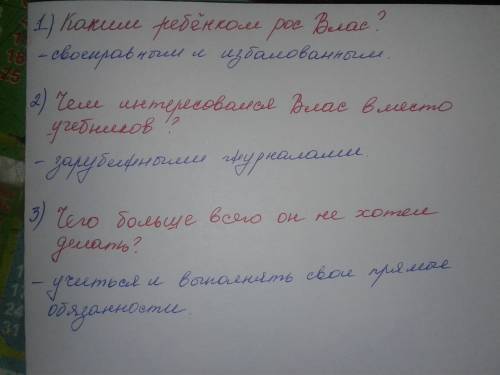 1) Каким ребёнком рос Влас?
- своенравным и избалованным.
2) Чем интересовался Влас вместо
учебников?
- зарубежными журналами.
3) Чего больше всего он не хотел
делать?
- учиться и выполнять свои прямые
обязанности.